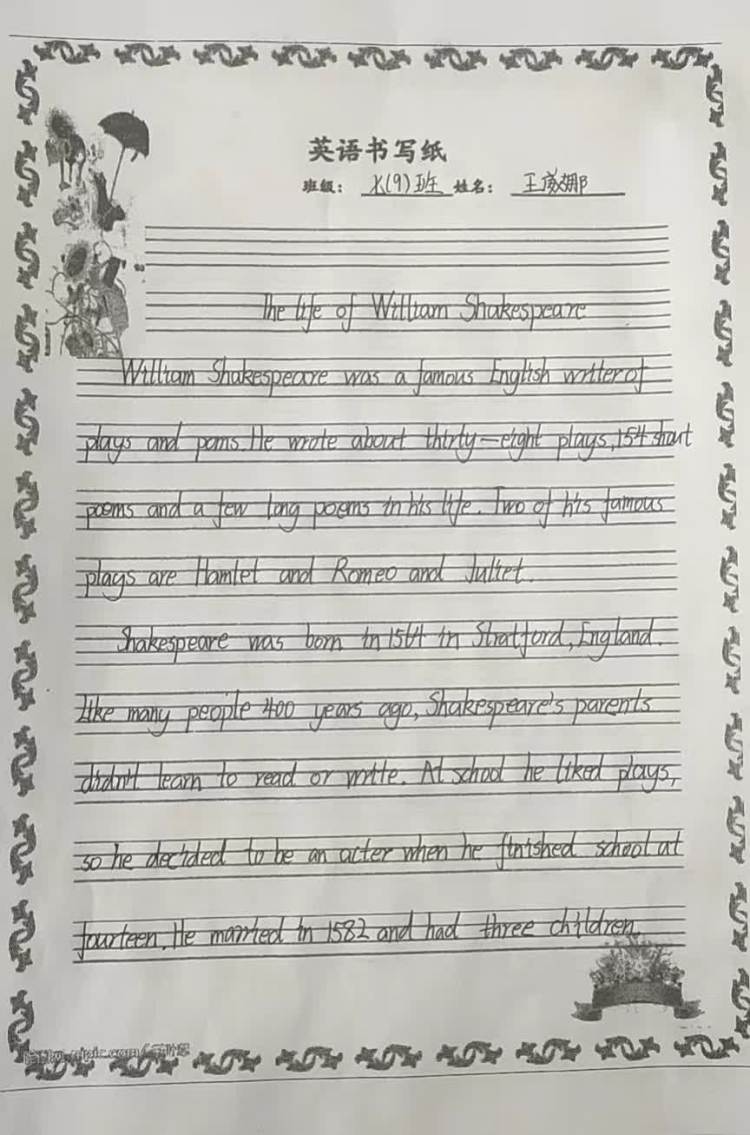 英语书写纸
班级: 八(9)班 姓名: 王
The life of William Shakespeare
William Shakespeare was a famous English writer of
plays and poms. He wrote about thirty-eight plays, 154 short
poems and a few long poems in his life. Two of his famous
plays are Hamlet and Romeo and Juliet.
Shakespeare was born in 1564 in Stratford, England.
Like many people 400 years ago, Shakespeare's parents
didn't learn to read or write. At school he liked plays,
so he decided to be an acter when he finished school at
fourteen. He married in 1582 and had three children.